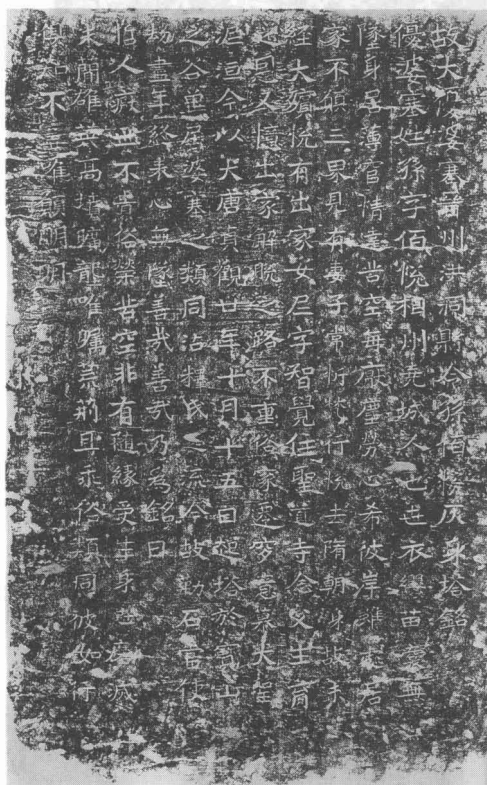 故大優婆塞晉州洪洞縣令孫佰悅灰身塔銘
優婆塞姓孫字佰悅相州堯城人也世衣纓苗裔無
墜身居薄官情達苦空每厭塵勞心希彼岸雖處居
家不願三界見有妻子常忻梵行悅去隋朝身故未
經大殯悅有出家女尼字智覺住聖道寺念父生育
之恩又憶出家解脫之路不重俗家遷穸意慕大聖
泥洹今以大唐貞觀廿年十月十五日起塔於寶山
之谷並居婆塞之類同沾釋氏之流今故勒石當使
劫盡年終表心無墜善哉善哉乃為銘曰
哲人厭世不貴俗榮苦空非有隨緣受生身世磨滅
未簡雄英高墳曠壟唯矚荒荊且乖俗類同彼如行
真如不